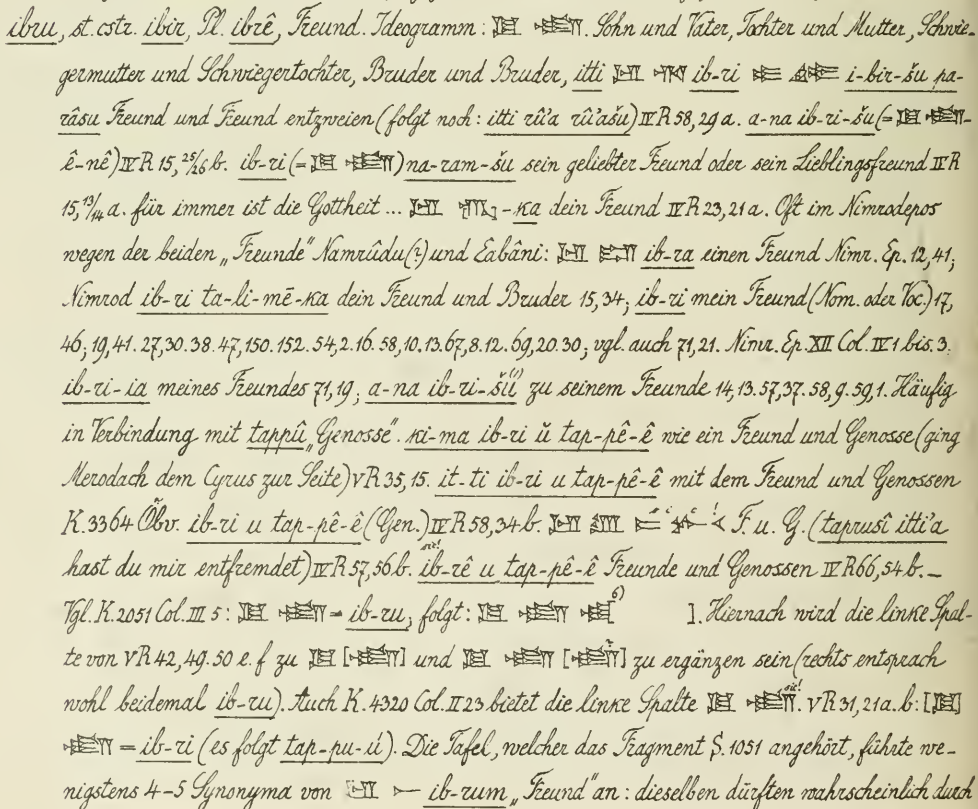 ibru, st. cstr. ibir, Pl. ibrê, Freund. Ideogramm: . Sohn und Vater, Tochter und Mutter, Schwie-
germutter und Schwiegertochter, Bruder und Bruder, itti ib-ri i-bir-šu pa-
râsu Freund und Freund entzweien (folgt noch: itti rû'a rû'ašu) IV R 58, 29 a. a-na ib-ri-šu (=
ê-nê) IV R 15, 25/26 b. ib-ri (= ) na-ram-šu sein geliebter Freund oder sein Lieblingsfreund IV R
15, 13/14 a. für immer ist die Gottheit ... -ka dein Freund IV R 23, 21 a. Oft im Nimrodepos
wegen der beiden „Freunde" Namrûdu (?) und Eabâni: ib-ra einen Freund Nimr. Ep. 12, 41;
Nimrod ib-ri ta-li-mē-ka dein Freund und Bruder 15, 34; ib-ri mein Freund (Nom. oder Voc.) 17,
46; 19, 41. 27, 30. 38. 47, 150. 152. 54, 2. 16. 58, 10. 13. 67, 8. 12. 69, 20. 30; vgl. auch 71, 21. Nimr. Ep. XII Col. IV 1 bis 3.
ib-ri-ia meines Freundes 71, 19; a-na ib-ri-šu zu seinem Freunde 14, 13. 57, 37. 58, 9. 59, 1. Häufig
in Verbindung mit tappû „Genosse". ki-ma ib-ri ŭ tap-pê-ê wie ein Freund und Genosse (ging
Merodach dem Cyrus zur Seite) V R 35, 15. it-ti ib-ri u tap-pê-ê mit dem Freund und Genossen
K. 3364 Obv. ib-ri u tap-pê-ê (Gen.) IV R 58, 34 b. F. u. G. (taprusî itti'a
hast du mir entfremdet) IV R 57, 56 b. ib-rê u tap-pê-ê Freunde und Genossen IV R 66, 54 b. —
Vgl. K. 2051 Col. III 5: = ib-ru, folgt: 6) ]. Hiernach wird die linke Spal-
te von V R 42, 49. 50 e. f zu [ ] und [ ] zu ergänzen sein (rechts entsprach
wohl beidemal ib-ru). Auch K. 4320 Col. II 23 bietet die linke Spalte sic! . V R 31, 21 a. b: [ ]
= ib-ri (es folgt tap-pu-ú). Die Tafel, welcher das Fragment S. 1051 angehört, führte we-
nigstens 4-5 Synonyma von ib-rum „Freund" an: dieselben dürften wahrscheinlich durch